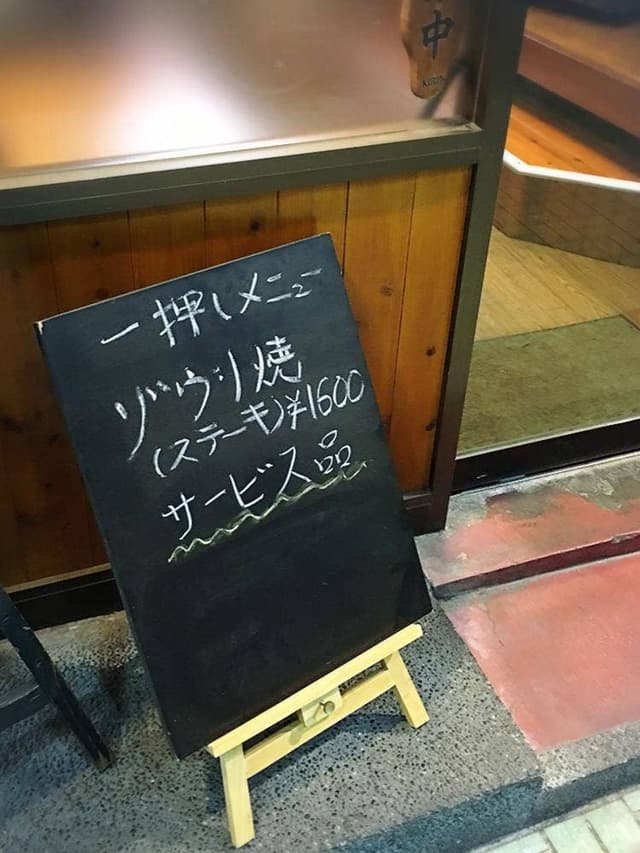 中
KIRIN
一押しメニュー
ゾウリ焼
(ステーキ)¥1600
サービス品